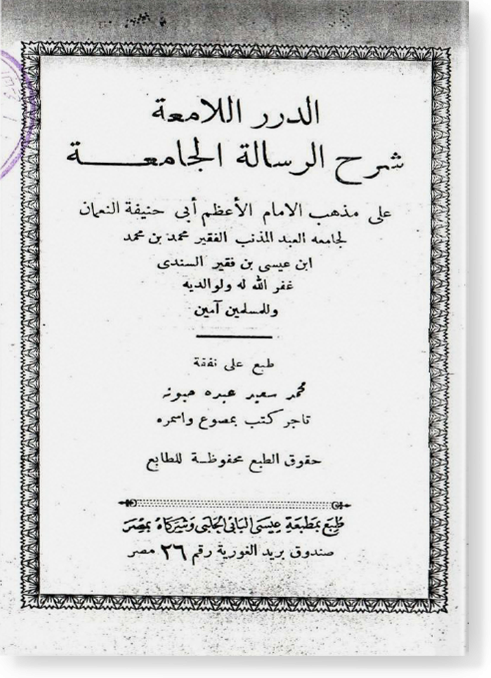 الدرر اللامعة
شرح الرسالة الجامعـــــة
على مذهب الامام الأعظم أبى حنيفة النعمان
لجامعه العبد المذنب الفقير محمد بن محمد
ابن عيسى بن فقير السندى
غفر الله له ولوالديه
وللمسلمين آمين
طبع على نفقة
محمد سعيد عبده
تاجر كتب بمصوع واسمره
حقوق الطبع محفوظـة للطابع
طبع بمطبعة عيسى البابى الحلبى وشركاه بمصر
صندوق بريد الغورية رقم ٢٦ مصر